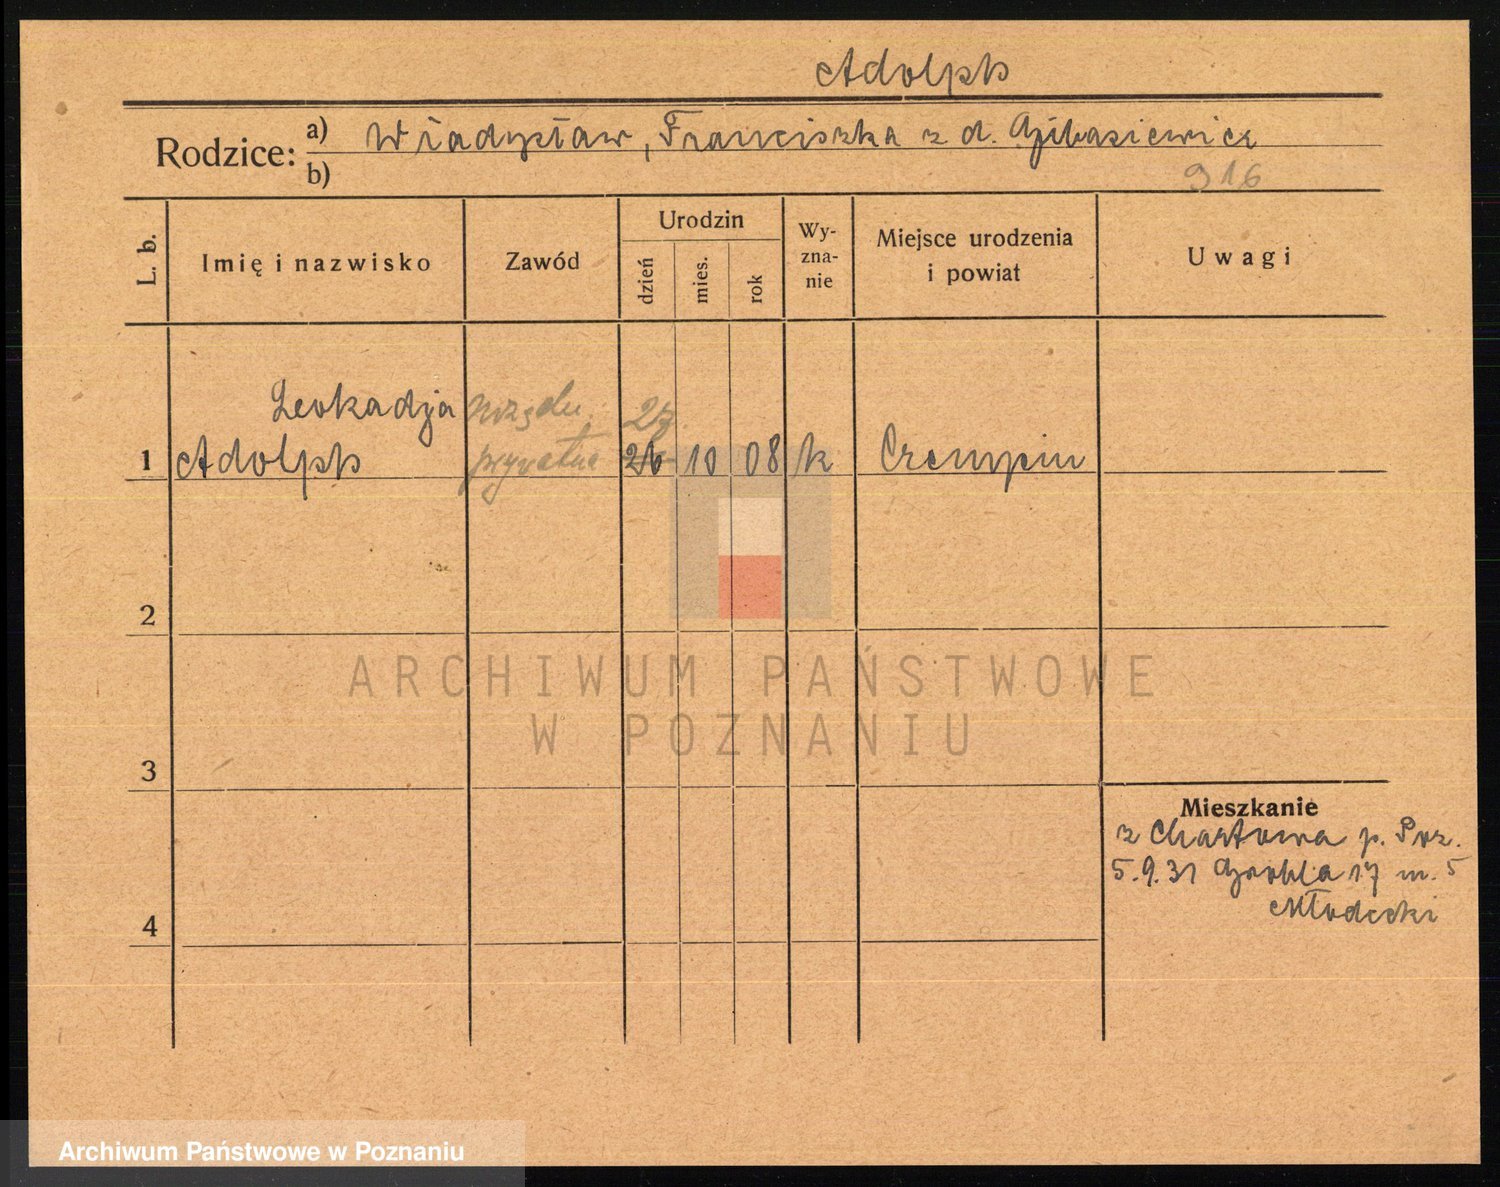 Adolph
Rodzice: a) Władysław, Franciszka z d. Gibasiewicz
b) 916
L. b. Imię i nazwisko Zawód Urodzin dzień mies. rok Wy-zna-nie Miejsce urodzenia i powiat Uwagi
Leokadja urzędn. 27.
1 Adolph prywatna 26 10 08 k Czempiń
2
ARCHIWUM PAŃSTWOWE
W POZNANIU
3
Mieszkanie
z Chartowa p. Poz.
5.9.31 Grobla 17 m. 5
Młodecki
4
Archiwum Państwowe w Poznaniu